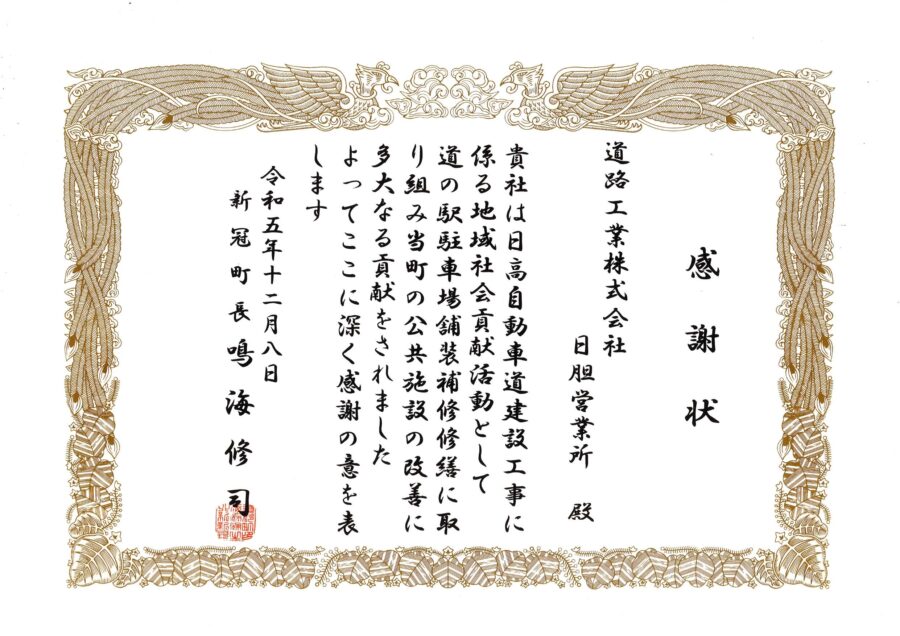 感謝状
道路工業株式会社
日胆営業所 殿
貴社は日高自動車道建設工事に
係る地域社会貢献活動として
道の駅駐車場舗装補修修繕に取
り組み当町の公共施設の改善に
多大なる貢献をされました
よってここに深く感謝の意を表
します
令和五年十二月八日
新冠町長 鳴海修司